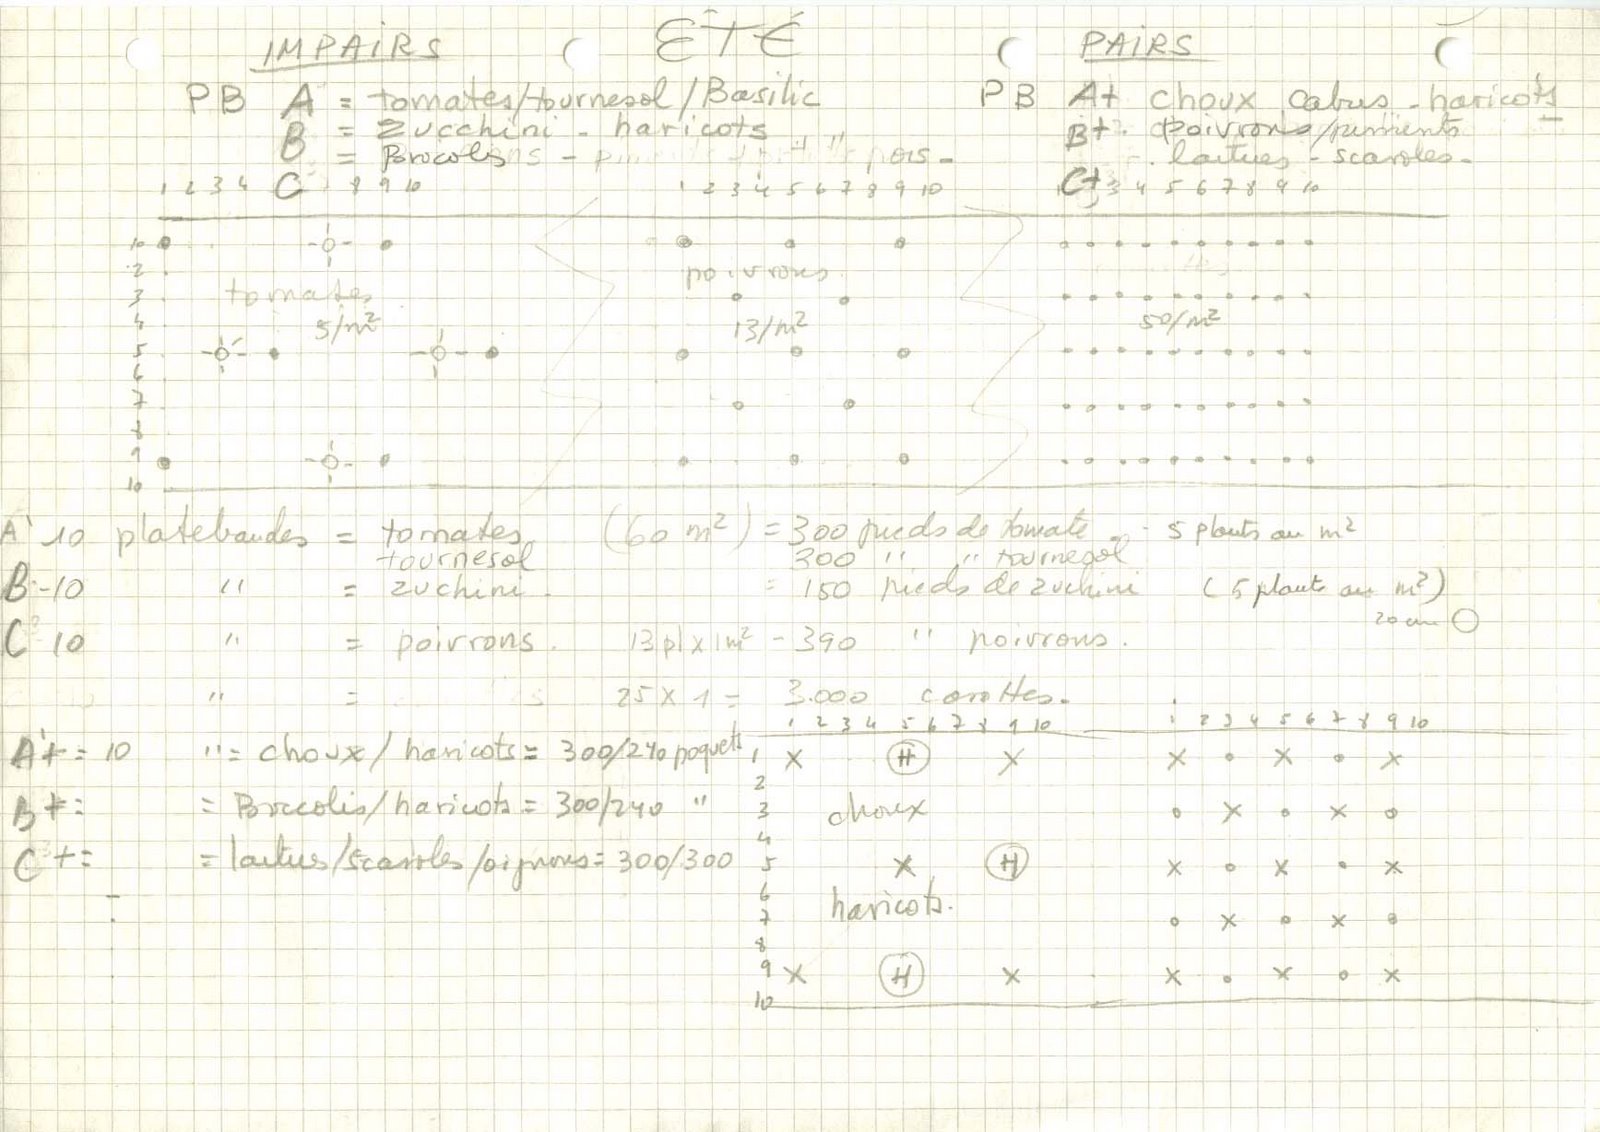 IMPAIRS ÉTÉ PAIRS
PB A = tomates/tournesol/Basilic PB A+ choux cabus - haricots
B = Zucchini - haricots " " B+ poivrons/piments
= Brocolis - pois - laitues - scaroles -
1 2 3 4 C 8 9 10 1 2 3 4 5 6 7 8 9 10 C+ 3 4 5 6 7 8 9 10
10
2 poivrons
3 tomates
4 5/m² 13/m² 50/m²
5
6
7
8
9
10
A 10 platebandes = tomates (60 m²) = 300 pieds de tomate - 5 plants au m²
tournesol 300 " " tournesol
B - 10 " = zuchini. = 150 pieds de zuchini (5 plants au m²)
20 cm
C 10 " = poivrons. 13 pl x 1m² - 390 " poivrons.
" = 25 x 1 = 3.000 carottes -
1 2 3 4 5 6 7 8 9 10 1 2 3 4 5 6 7 8 9 10
A+ = 10 " = choux/haricots = 300/240 poquets 1 X H X X X X
2
B+ = = Broccolis/haricots = 300/240 " 3 choux X X
4
C+ = = laitues/scaroles/oignons = 300/300 5 X H X X X
6 haricots.
7 X X
8
9 X H X X X X
10